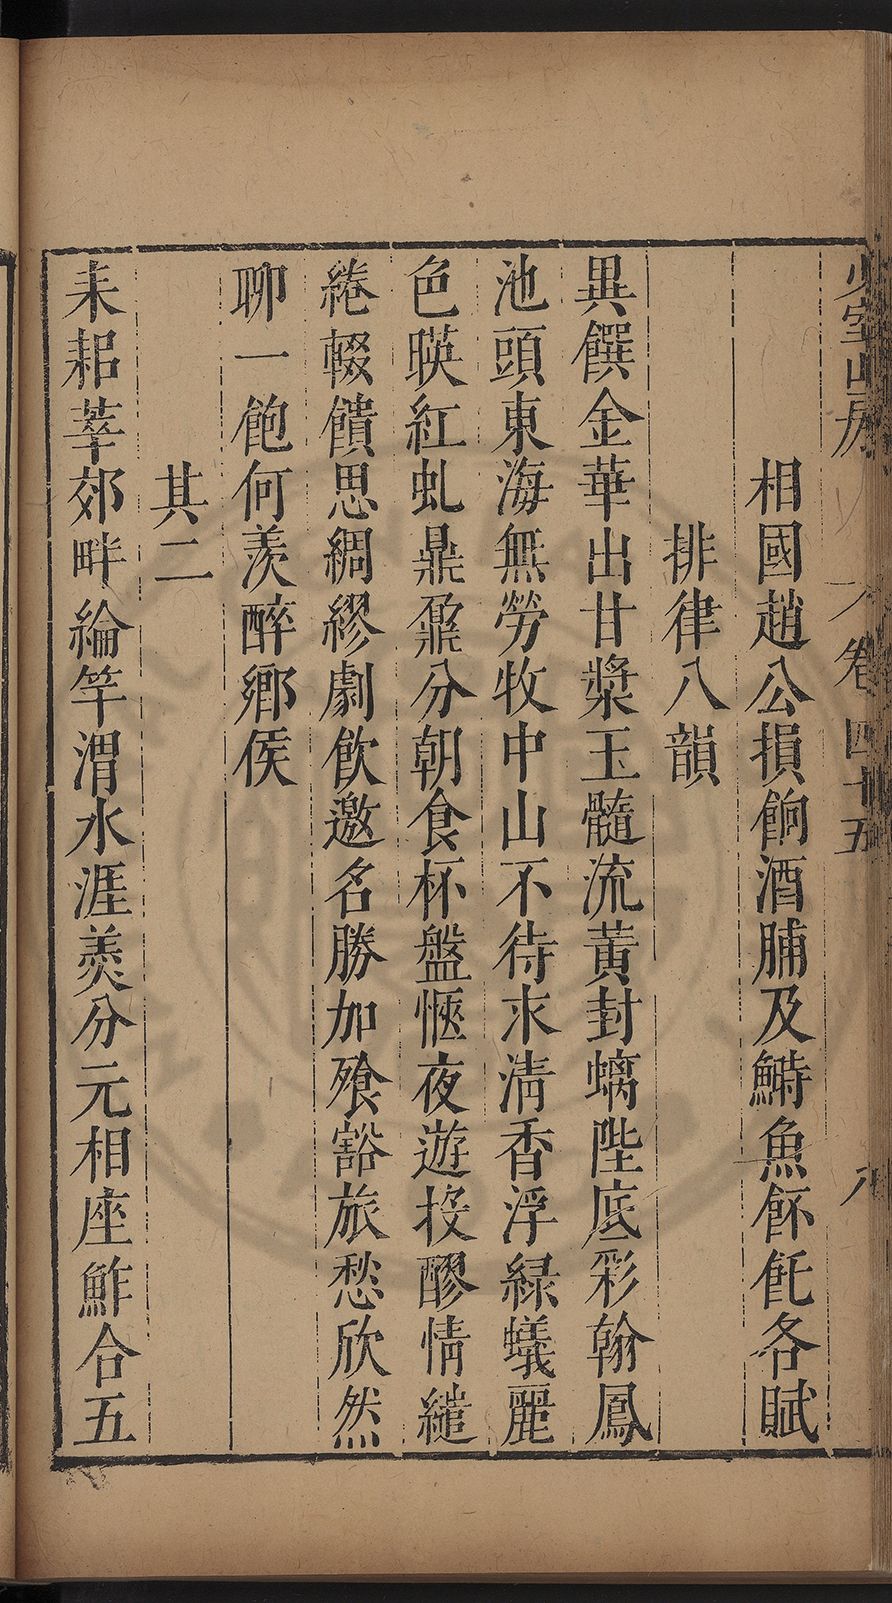 少室山房 卷四十五 八
相國趙公損餉酒脯及鰣魚䬩飥各賦
排律八韻
異饌金華出甘漿玉髓流黃封螭陛底彩翰鳳
池頭東海無勞牧中山不待求清香浮綠蟻麗
色暎紅虬鼎鼐分朝食杯盤愜夜遊投醪情繾
綣輟饋思綢繆劇飲邀名勝加飱豁旅愁欣然
聊一飽何羨醉鄉侯
其二
耒耜莘郊畔綸竿渭水涯羹分元相座鮓合五